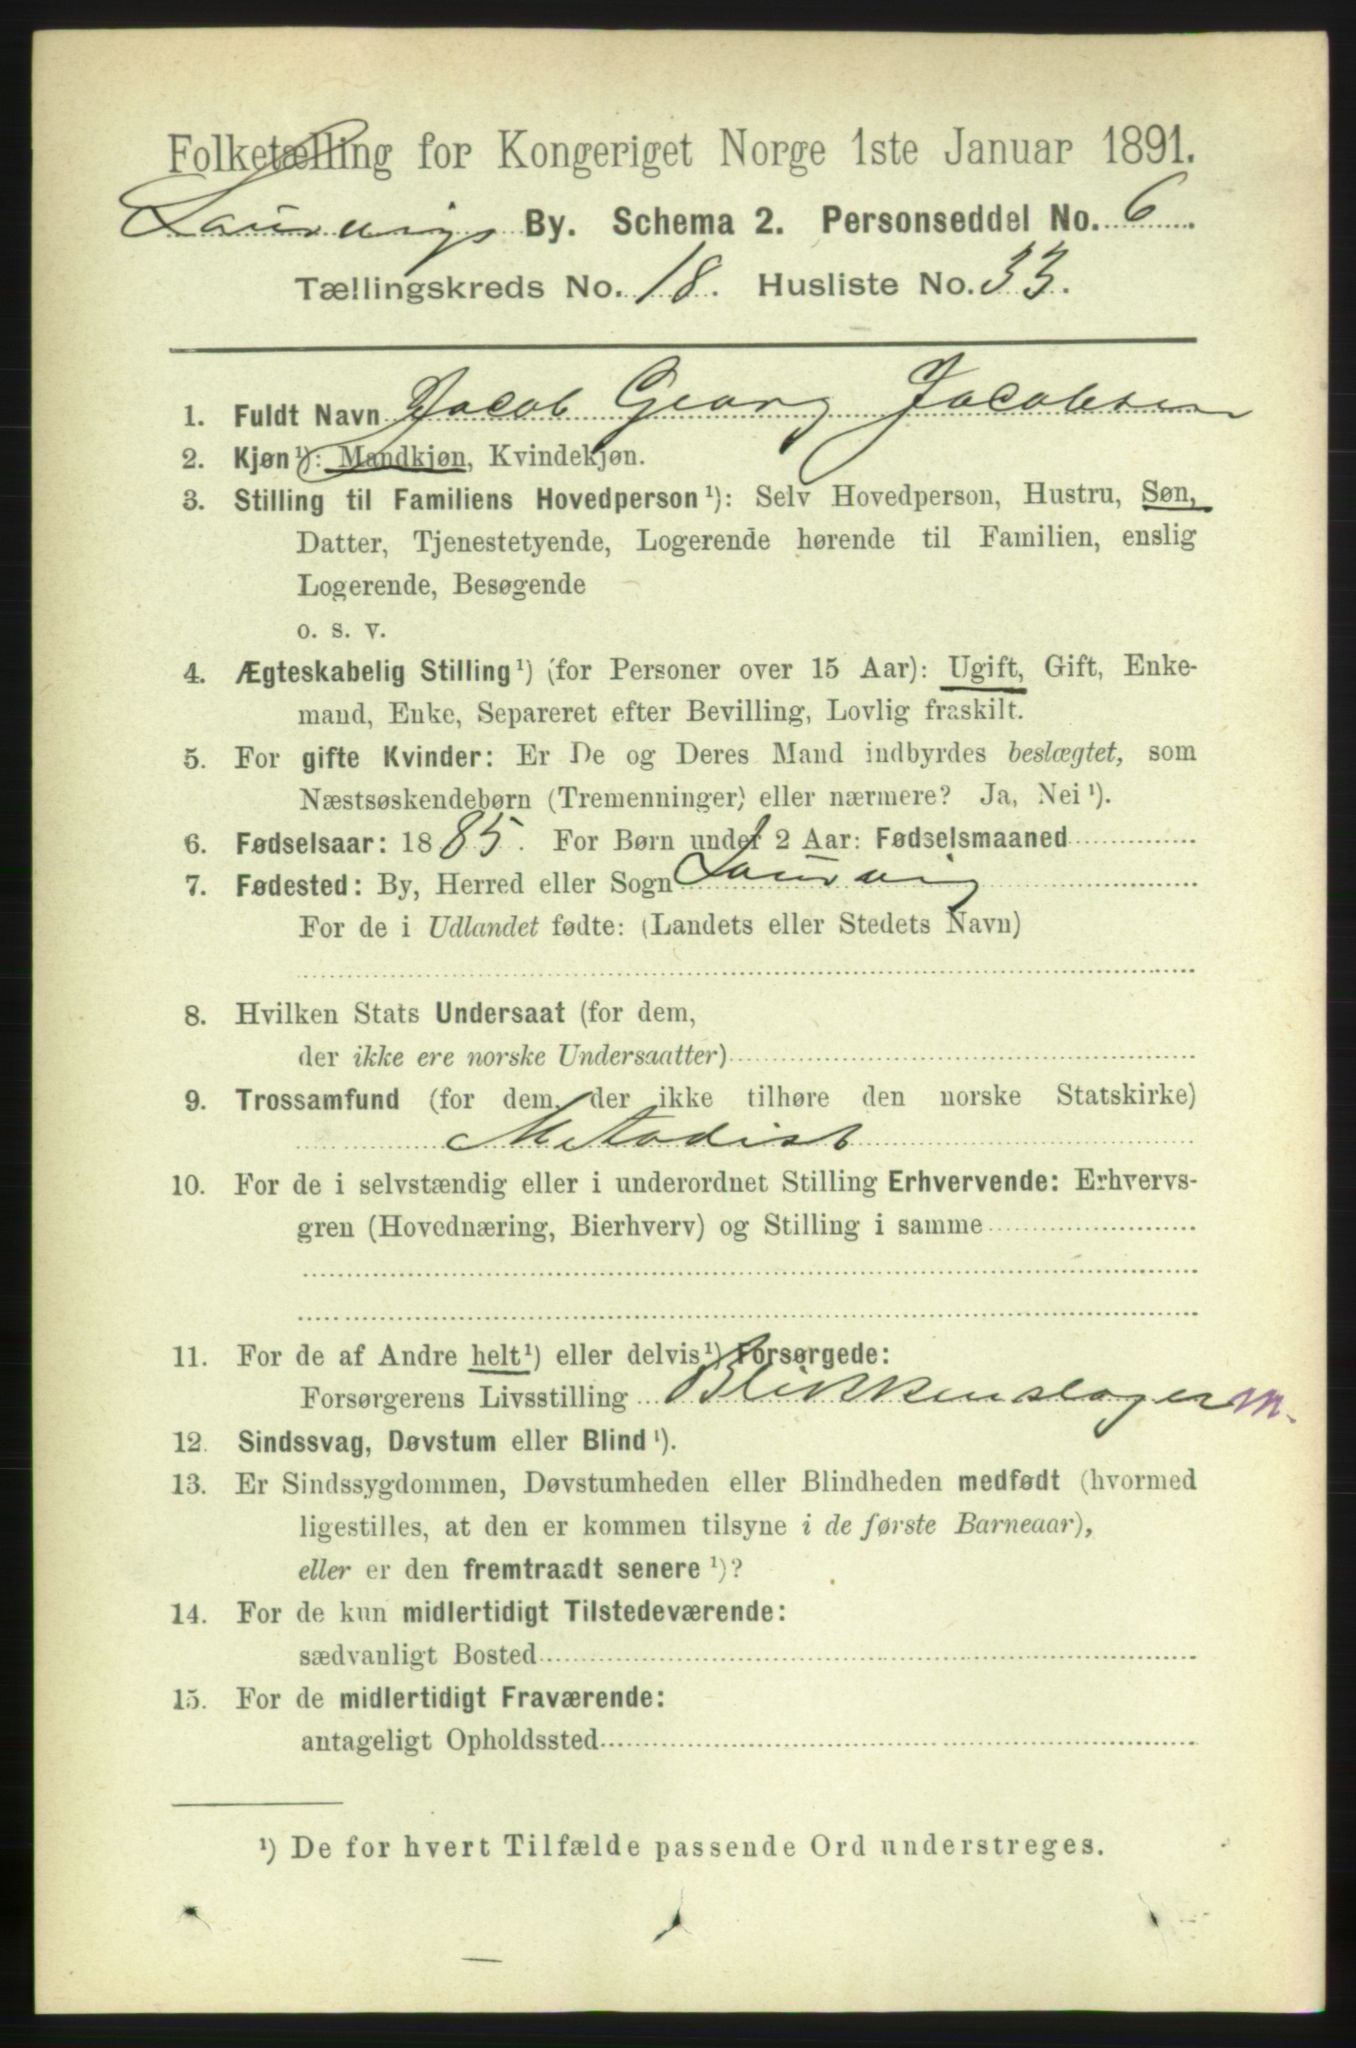 Folketælling for Kongeriget Norge 1ste Januar 1891.
Laurvigs By. Schema 2. Personseddel No. 6
Tællingskreds No. 18. Husliste No. 33.
1. Fuldt Navn Jacob Georg Jacobsen
2. Kjøn¹): Mandkjøn, Kvindekjøn.
3. Stilling til Familiens Hovedperson¹): Selv Hovedperson, Hustru, Søn,
Datter, Tjenestetyende, Logerende hørende til Familien, enslig
Logerende, Besøgende
o. s. v.
4. Ægteskabelig Stilling¹) (for Personer over 15 Aar): Ugift, Gift, Enke-
mand, Enke, Separeret efter Bevilling, Lovlig fraskilt.
5. For gifte Kvinder: Er De og Deres Mand indbyrdes beslægtet, som
Næstsøskendebørn (Tremenninger) eller nærmere? Ja, Nei¹).
6. Fødselsaar: 1885. For Børn under 2 Aar: Fødselsmaaned
7. Fødested: By, Herred eller Sogn Laurvig
For de i Udlandet fødte: (Landets eller Stedets Navn)
8. Hvilken Stats Undersaat (for dem,
der ikke ere norske Undersaatter)
9. Trossamfund (for dem, der ikke tilhøre den norske Statskirke)
Metodist
10. For de i selvstændig eller i underordnet Stilling Erhvervende: Erhvervs-
gren (Hovednæring, Bierhverv) og Stilling i samme
11. For de af Andre helt¹) eller delvis¹) Forsørgede:
Forsørgerens Livsstilling Blikkenslager m.
12. Sindssvag, Døvstum eller Blind¹).
13. Er Sindssygdommen, Døvstumheden eller Blindheden medfødt (hvormed
ligestilles, at den er kommen tilsyne i de første Barneaar),
eller er den fremtraadt senere¹)?
14. For de kun midlertidigt Tilstedeværende:
sædvanligt Bosted
15. For de midlertidigt Fraværende:
antageligt Opholdssted
¹) De for hvert Tilfælde passende Ord understreges.